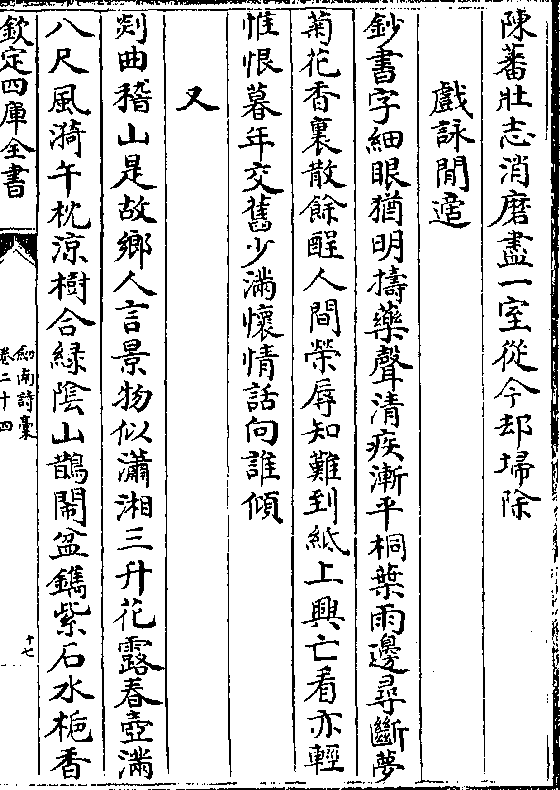 陳蕃壯志消磨盡一室從今却埽除
戲詠閒適
鈔書字細眼猶明擣藥聲清疾漸平桐葉雨邊尋斷夢
菊花香裏散餘酲人間榮辱知難到紙上興亡看亦輕
惟恨暮年交舊少滿懷情話向誰傾
又
剡曲稽山是故鄉人言景物似瀟湘三升花露春壺滿
八尺風漪午枕涼樹合綠陰山鵲鬧盆鐫紫石水梔香
欽定四庫全書
劍南詩稾
卷二十四
十七